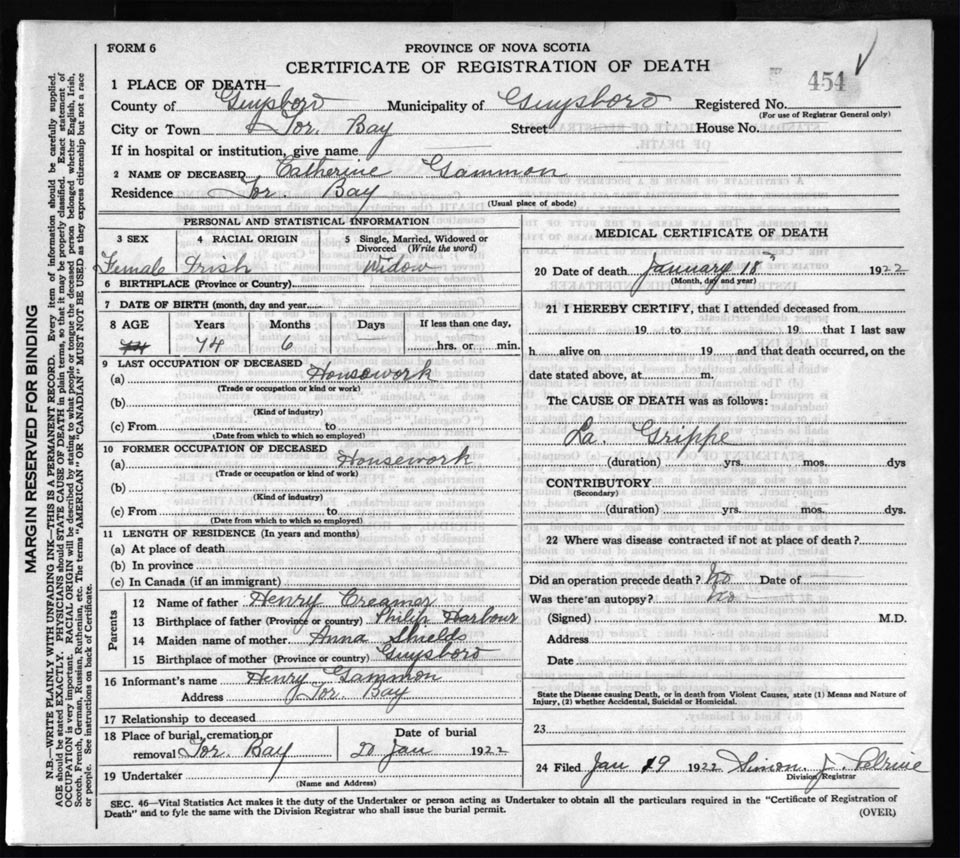 FORM 6
PROVINCE OF NOVA SCOTIA
CERTIFICATE OF REGISTRATION OF DEATH
454
1 PLACE OF DEATH—
County of Guysboro Municipality of Guysboro Registered No.
(For use of Registrar General only)
City or Town Tor. Bay Street House No.
If in hospital or institution, give name
2 NAME OF DECEASED Catherine Gammon
Residence Tor Bay
(Usual place of abode)
PERSONAL AND STATISTICAL INFORMATION
3 SEX 4 RACIAL ORIGIN 5 Single, Married, Widowed or Divorced (Write the word)
Female Irish Widow
6 BIRTHPLACE (Province or County)
7 DATE OF BIRTH (month, day and year)
8 AGE Years Months Days If less than one day,
74 6 hrs. or min.
9 LAST OCCUPATION OF DECEASED
(a) Housework
(Trade or occupation or kind or work)
(b)
(Kind of industry)
(c) From to
(Date from which to which so employed)
10 FORMER OCCUPATION OF DECEASED
(a) Housework
(Trade or occupation or kind of work)
(b)
(Kind of industry)
(c) From to
(Date from which to which so employed)
11 LENGTH OF RESIDENCE (In years and months)
(a) At place of death
(b) In province
(c) In Canada (if an immigrant)
Parents
12 Name of father Henry Creamer
13 Birthplace of father (Province or country) Philip Harbour
14 Maiden name of mother Anna Shields
15 Birthplace of mother (Province or country) Guysboro
16 Informant's name Henry Gammon
Address Tor. Bay
17 Relationship to deceased
18 Place of burial, cremation or removal Tor. Bay
Date of burial
20 Jan 1922
19 Undertaker
(Name and Address)
MEDICAL CERTIFICATE OF DEATH
20 Date of death January 18 1922
(Month, day and year)
21 I HEREBY CERTIFY, that I attended deceased from
19 to 19 that I last saw
h alive on 19 and that death occurred, on the
date stated above, at m.
The CAUSE OF DEATH was as follows:
La. Grippe
(duration) yrs. mos. dys
CONTRIBUTORY
(Secondary)
(duration) yrs. mos. dys.
22 Where was disease contracted if not at place of death?
Did an operation precede death? No Date of
Was there an autopsy? No
(Signed) M.D.
Address
Date
State the Disease causing Death, or in death from Violent Causes, state (1) Means and Nature of
Injury, (2) whether Accidental, Suicidal or Homicidal.
23
24 Filed Jan 19 1922 Simon J.
Division Registrar
SEC. 46—Vital Statistics Act makes it the duty of the Undertaker or person acting as Undertaker to obtain all the particulars required in the "Certificate of Registration of
Death" and to fyle the same with the Division Registrar who shall issue the burial permit.
(OVER)
MARGIN RESERVED FOR BINDING
N.B.—WRITE PLAINLY WITH UNFADING INK—THIS IS A PERMANENT RECORD. Every item of information should be carefully supplied.
AGE should be stated EXACTLY. PHYSICIANS should STATE CAUSE OF DEATH in plain terms, so that it may be properly classified. Exact statement of
OCCUPATION is very important. RACIAL ORIGIN will be described by stating to what people or tongue the deceased person belonged whether English, Irish,
Scotch, French, German, Russian, Ruthenian, etc. The terms "AMERICAN" OR "CANADIAN" MUST NOT BE USED as they express citizenship but not a race
or people. See instructions on back of Certificate.